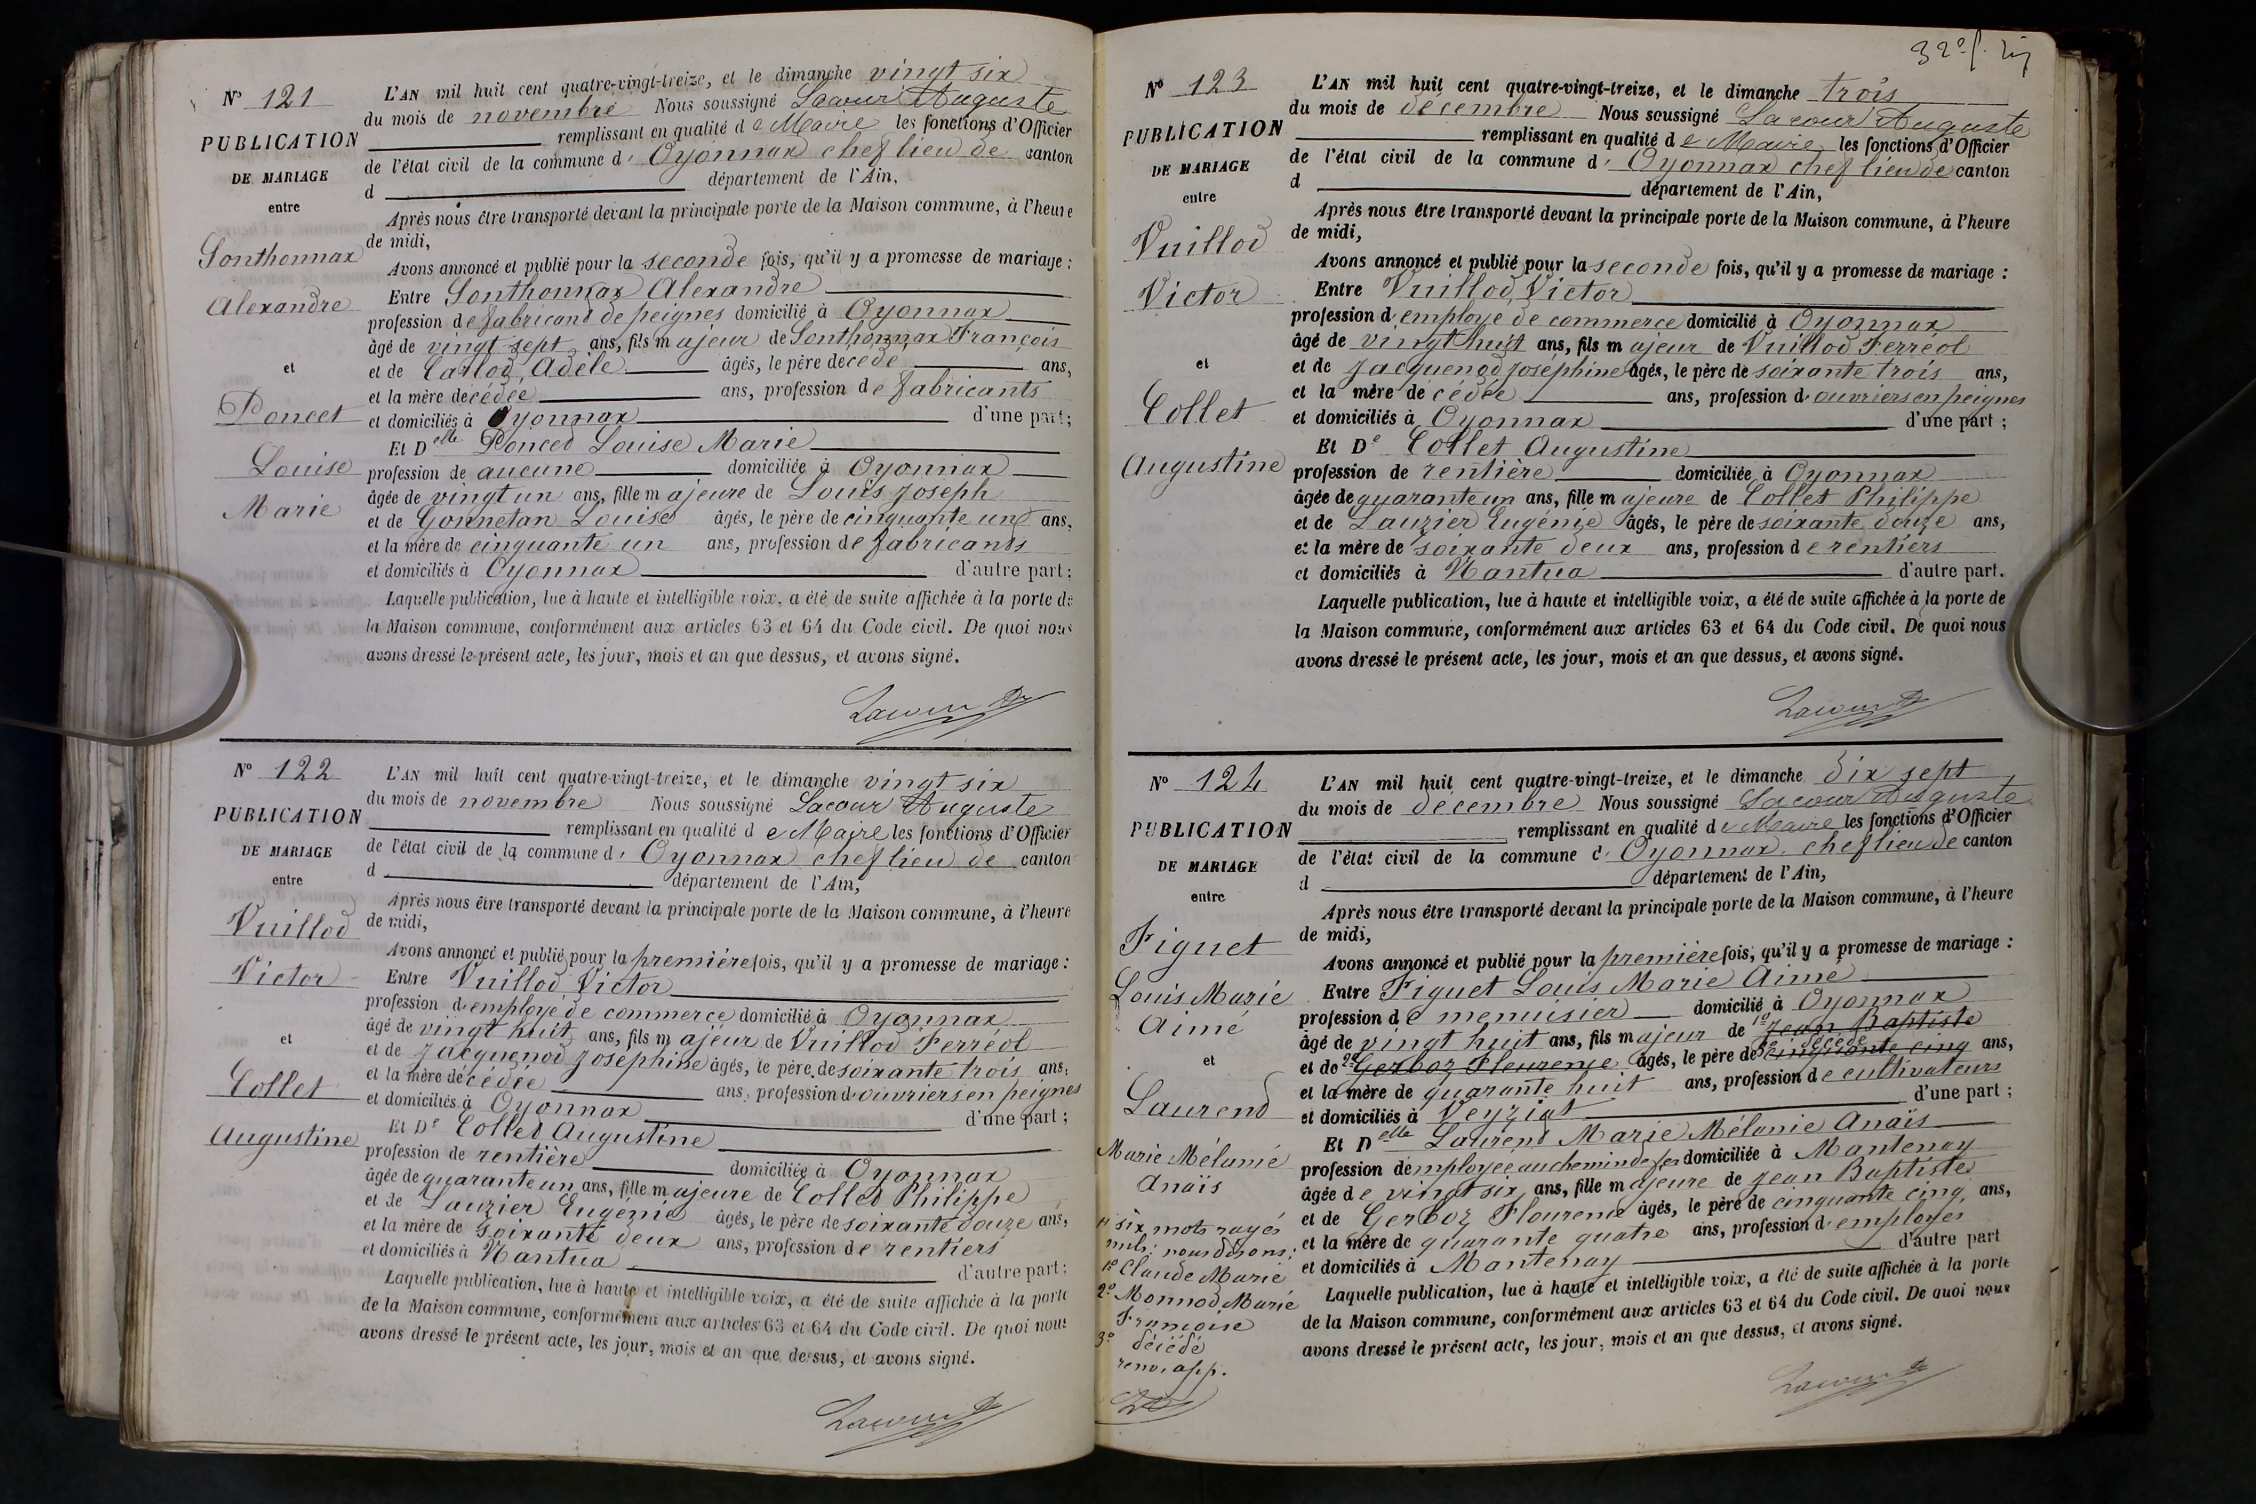 Nº 121
PUBLICATION
DE MARIAGE
entre
Sonthonnax
Alexandre
et
Poncet
Louise
Marie
L'AN mil huit cent quatre-vingt-treize, et le dimanche vingt six
du mois de novembre Nous soussigné Lacour Auguste
remplissant en qualité de Maire les fonctions d'Officier
de l'état civil de la commune d' Oyonnax chef lieu de canton
d département de l'Ain,
Après nous être transporté devant la principale porte de la Maison commune, à l'heure
de midi,
Avons annoncé et publié pour la seconde fois, qu'il y a promesse de mariage :
Entre Sonthonnax Alexandre
profession de fabricant de peignes domicilié à Oyonnax
âgé de vingt sept ans, fils majeur de Sonthonnax François
et de Carlod Adèle âgés, le père décédé ans,
et la mère décédée ans, profession de fabricants
et domiciliés à Oyonnax d'une part ;
Et Delle Poncet Louise Marie
profession de aucune domiciliée à Oyonnax
âgée de vingt un ans, fille majeure de Louis Joseph
et de Gonnetan Louise âgés, le père de cinquante un ans,
et la mère de cinquante un ans, profession de fabricants
et domiciliés à Oyonnax d'autre part ;
Laquelle publication, lue à haute et intelligible voix, a été de suite affichée à la porte de
la Maison commune, conformément aux articles 63 et 64 du Code civil. De quoi nous
avons dressé le présent acte, les jour, mois et an que dessus, et avons signé.
Lacour
Nº 122
PUBLICATION
DE MARIAGE
entre
Vuillod
Victor
et
Collet
Augustine
L'AN mil huit cent quatre-vingt-treize, et le dimanche vingt six
du mois de novembre Nous soussigné Lacour Auguste
remplissant en qualité de Maire les fonctions d'Officier
de l'état civil de la commune d' Oyonnax chef lieu de canton
d département de l'Ain,
Après nous être transporté devant la principale porte de la Maison commune, à l'heure
de midi,
Avons annoncé et publié pour la première fois, qu'il y a promesse de mariage :
Entre Vuillod Victor
profession d'employé de commerce domicilié à Oyonnax
âgé de vingt huit ans, fils majeur de Vuillod Ferréol
et de Jacquenod Joséphine âgés, le père de soixante trois ans,
et la mère décédée ans, profession d'ouvriers en peignes
et domiciliés à Oyonnax d'une part ;
Et De Collet Augustine
profession de rentière domiciliée à Oyonnax
âgée de quarante un ans, fille majeure de Collet Philippe
et de Lauzier Eugénie âgés, le père de soixante douze ans,
et la mère de soixante deux ans, profession de rentiers
et domiciliés à Nantua d'autre part ;
Laquelle publication, lue à haute et intelligible voix, a été de suite affichée à la porte
de la Maison commune, conformément aux articles 63 et 64 du Code civil. De quoi nous
avons dressé le présent acte, les jour, mois et an que dessus, et avons signé.
Lacour
32º f.
Nº 123
PUBLICATION
DE MARIAGE
entre
Vuillod
Victor
et
Collet
Augustine
L'AN mil huit cent quatre-vingt-treize, et le dimanche trois
du mois de décembre Nous soussigné Lacour Auguste
remplissant en qualité de Maire les fonctions d'Officier
de l'état civil de la commune d' Oyonnax chef lieu de canton
d département de l'Ain,
Après nous être transporté devant la principale porte de la Maison commune, à l'heure
de midi,
Avons annoncé et publié pour la seconde fois, qu'il y a promesse de mariage :
Entre Vuillod Victor
profession d'employé de commerce domicilié à Oyonnax
âgé de vingt huit ans, fils majeur de Vuillod Ferréol
et de Jacquenod Joséphine âgés, le père de soixante trois ans,
et la mère décédée ans, profession d'ouvriers en peignes
et domiciliés à Oyonnax d'une part ;
Et De Collet Augustine
profession de rentière domiciliée à Oyonnax
âgée de quarante un ans, fille majeure de Collet Philippe
et de Lauzier Eugénie âgés, le père de soixante douze ans,
et la mère de soixante deux ans, profession de rentiers
et domiciliés à Nantua d'autre part.
Laquelle publication, lue à haute et intelligible voix, a été de suite affichée à la porte de
la Maison commune, conformément aux articles 63 et 64 du Code civil. De quoi nous
avons dressé le présent acte, les jour, mois et an que dessus, et avons signé.
Lacour
Nº 124
PUBLICATION
DE MARIAGE
entre
Figuet
Louis Marie
Aimé
et
Laurend
Marie Mélanie
Anaïs
six mots rayés
nuls; nous disons:
1º Claude Marie
2º Monnod Marie
Françoise
3º décédé
renv. app.
L'AN mil huit cent quatre-vingt-treize, et le dimanche dix sept
du mois de décembre Nous soussigné Lacour Auguste
remplissant en qualité de Maire les fonctions d'Officier
de l'état civil de la commune d' Oyonnax chef lieu de canton
d département de l'Ain,
Après nous être transporté devant la principale porte de la Maison commune, à l'heure
de midi,
Avons annoncé et publié pour la première fois, qu'il y a promesse de mariage :
Entre Figuet Louis Marie Aimé
profession de menuisier domicilié à Oyonnax
âgé de vingt huit ans, fils majeur de 1º Jean Baptiste
et de 2º Gerboz Fleurence âgés, le père de 3º décédé cinquante cinq ans,
et la mère de quarante huit ans, profession de cultivateurs
et domiciliés à Veyziat d'une part ;
Et Delle Laurend Marie Mélanie Anaïs
profession d'employée au chemin de fer domiciliée à Mantenay
âgée de vingt six ans, fille majeure de Jean Baptiste
et de Gerboz Flourence âgés, le père de cinquante cinq ans,
et la mère de quarante quatre ans, profession d'employés
et domiciliés à Mantenay d'autre part
Laquelle publication, lue à haute et intelligible voix, a été de suite affichée à la porte
de la Maison commune, conformément aux articles 63 et 64 du Code civil. De quoi nous
avons dressé le présent acte, les jour, mois et an que dessus, et avons signé.
Lacour